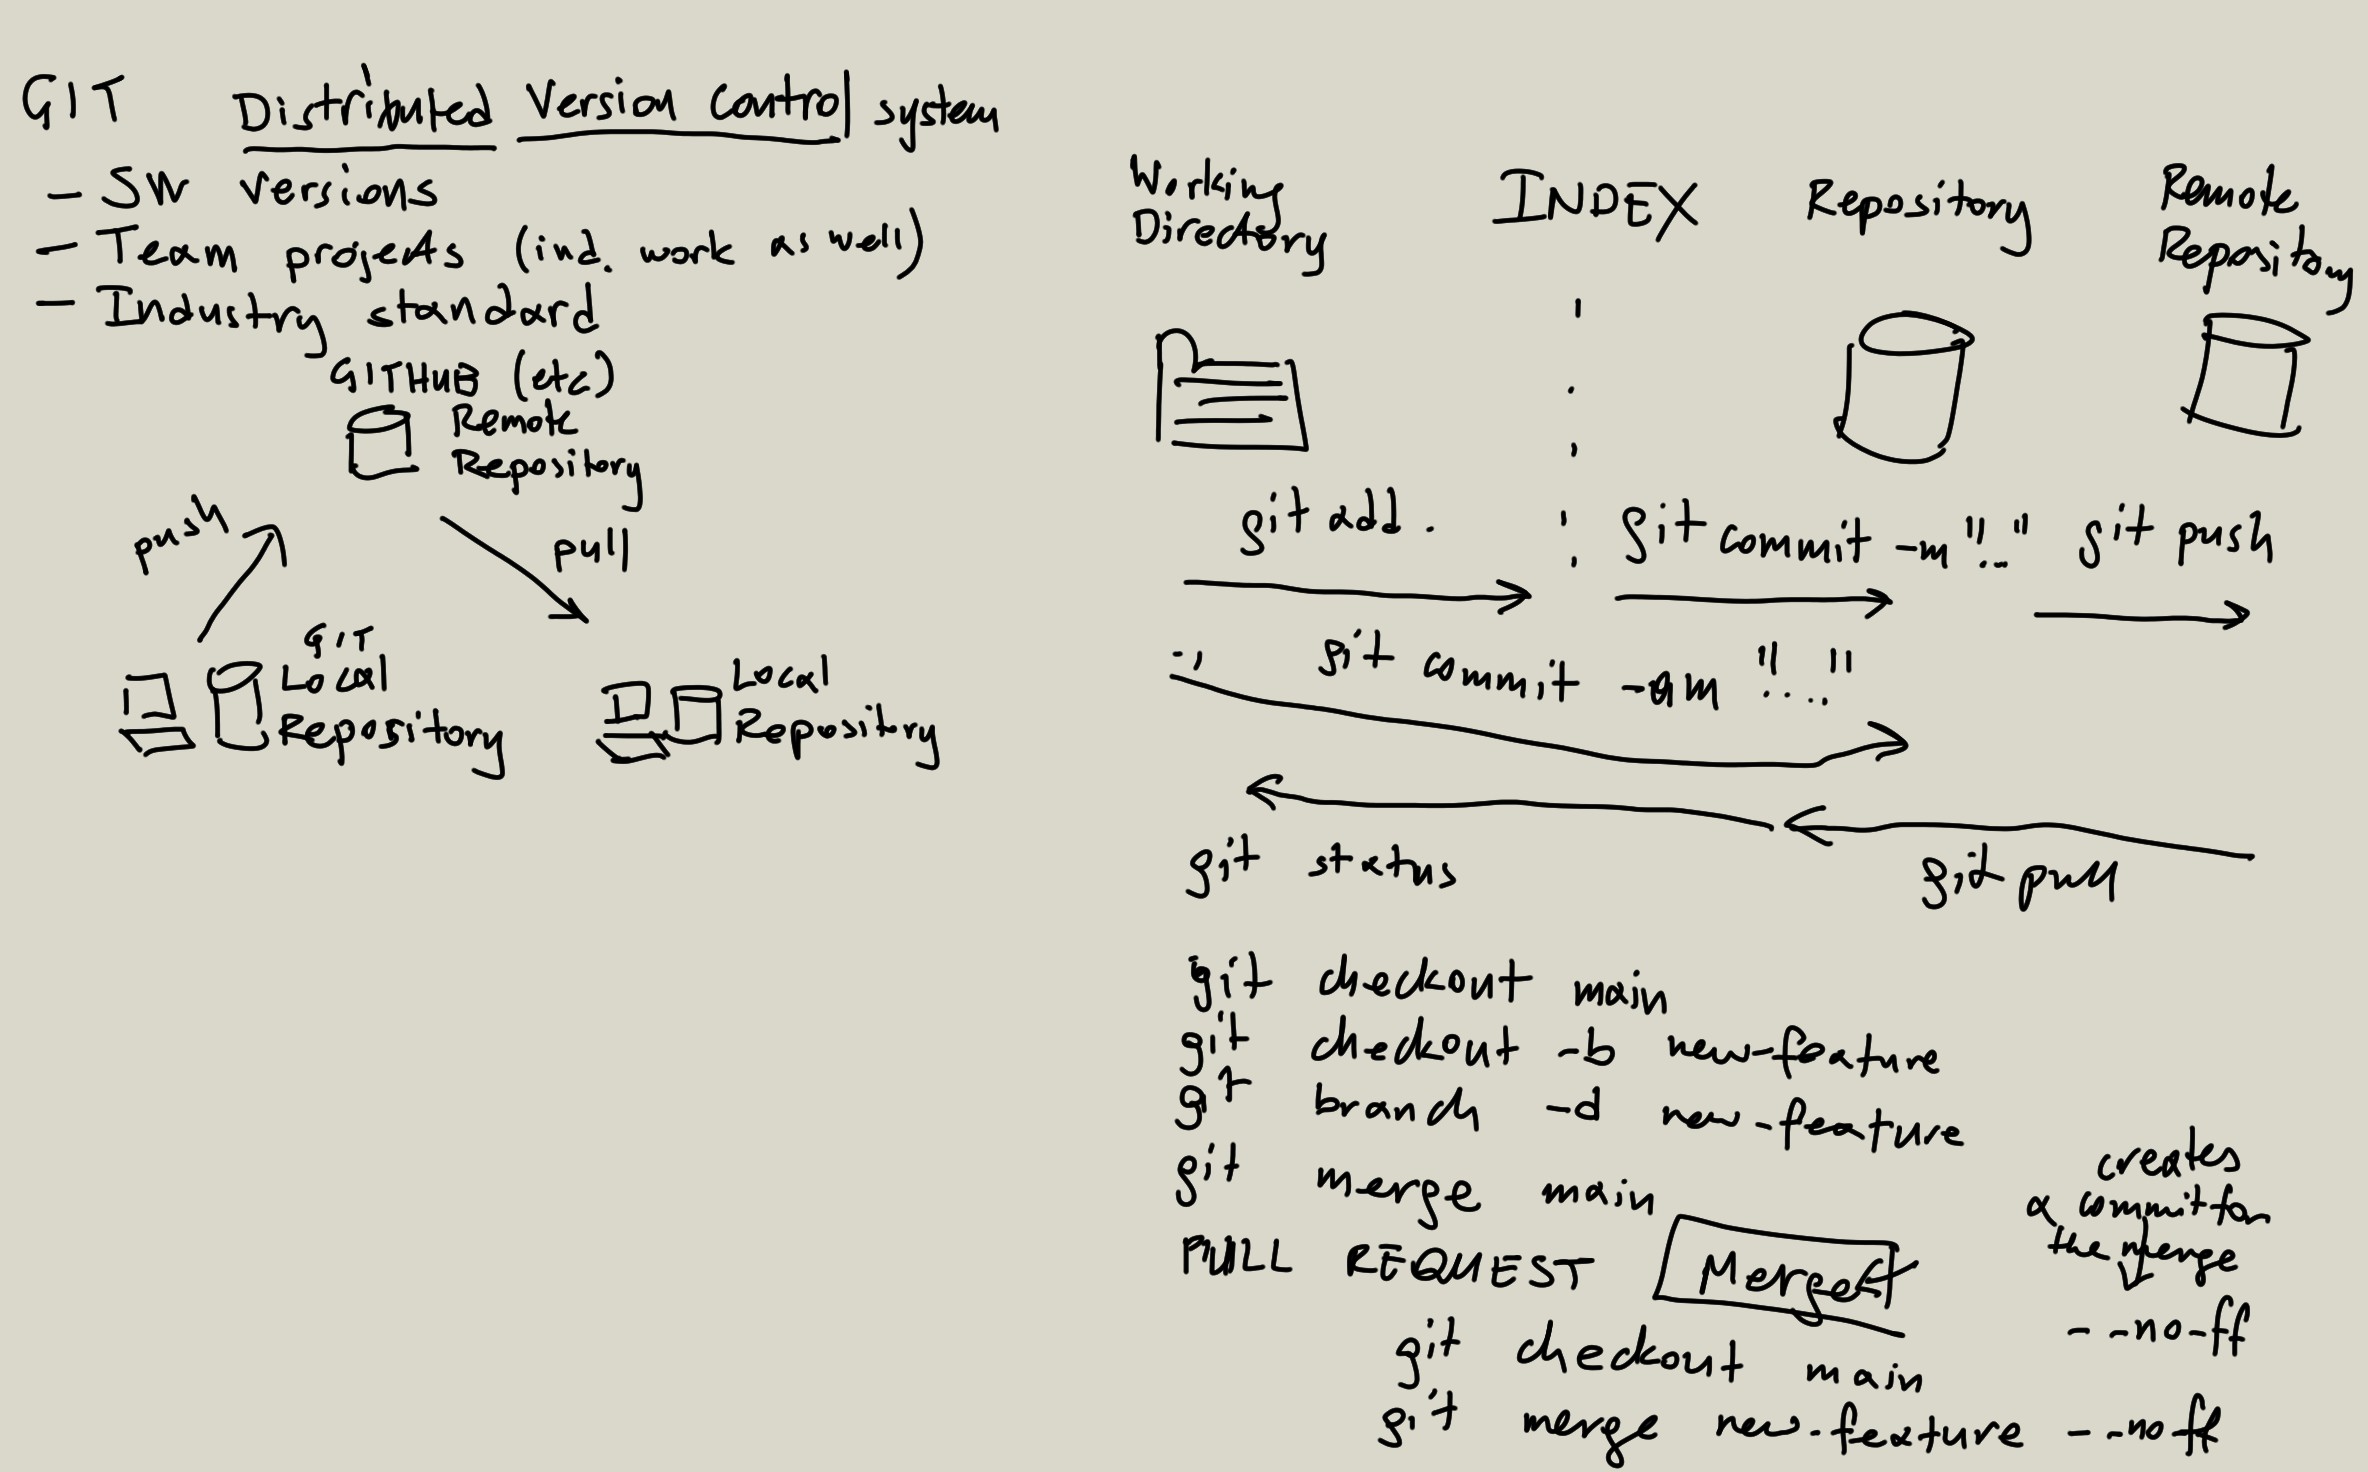 GIT Distributed Version Control system
- SW versions
- Team projects (ind. work as well)
- Industry standard
GITHUB (etc)
Remote
Repository
push
pull
GIT
Local
Repository
Local
Repository
Working
Directory
INDEX
Repository
Remote
Repository
git add .
git commit -m "..."
git push
git commit -am "...."
git status
git pull
git checkout main
git checkout -b new-feature
git branch -d new-feature
git merge main
PULL REQUEST Merge
creates
a commit for
the merge
--no-ff
git checkout main
git merge new-feature --no ff